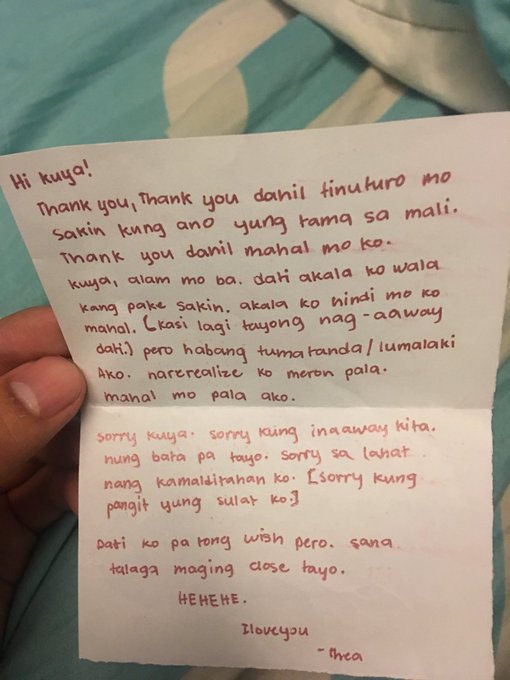 Hi kuya!
Thank you, Thank you dahil tinuturo mo
sakin kung ano yung tama sa mali.
Thank you dahil mahal mo ko.
kuya, alam mo ba. dati akala ko wala
kang pake sakin. akala ko hindi mo ko
mahal. [kasi lagi tayong nag-aaway
dati.] pero habang tumatanda/lumalaki
Ako. narerealize ko meron pala.
mahal mo pala ako.
sorry kuya. sorry kung inaaway kita.
nung bata pa tayo. sorry sa lahat
nang kamalditahan ko. [sorry kung
pangit yung sulat ko.]
Dati ko pa tong wish pero. sana
talaga maging close tayo.
HEHEHE.
Iloveyou
-thea